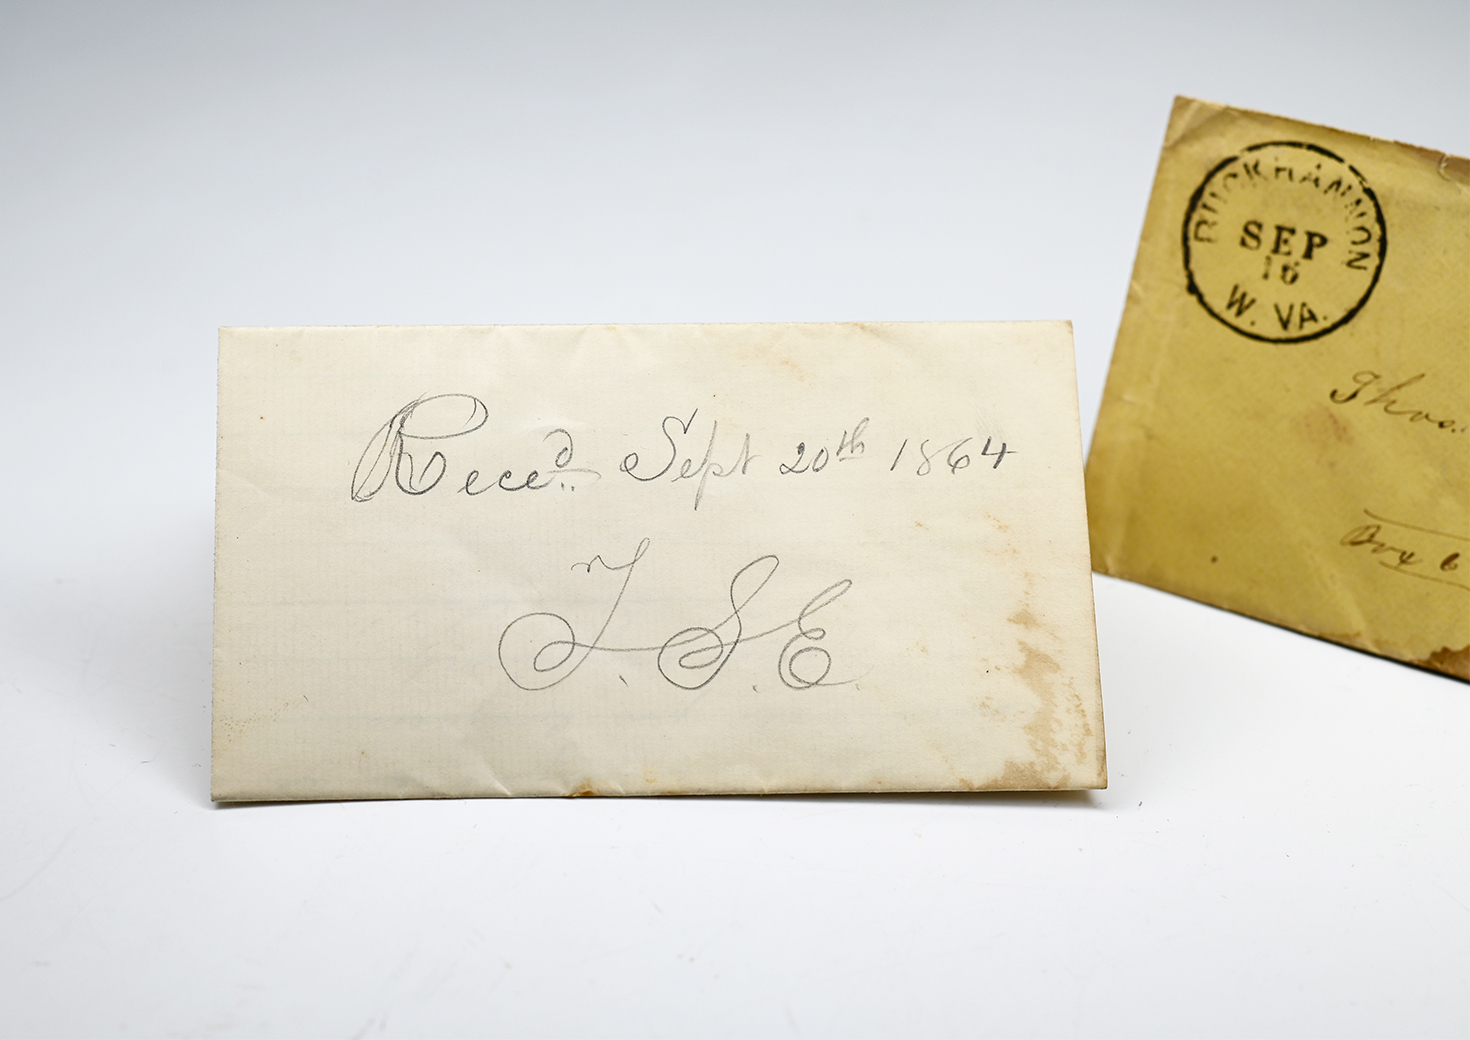 Rece^d Sept 20th 1864
T. S. E.
BUCKHANNON
SEP
16
W. VA.
Thos.
Box 6